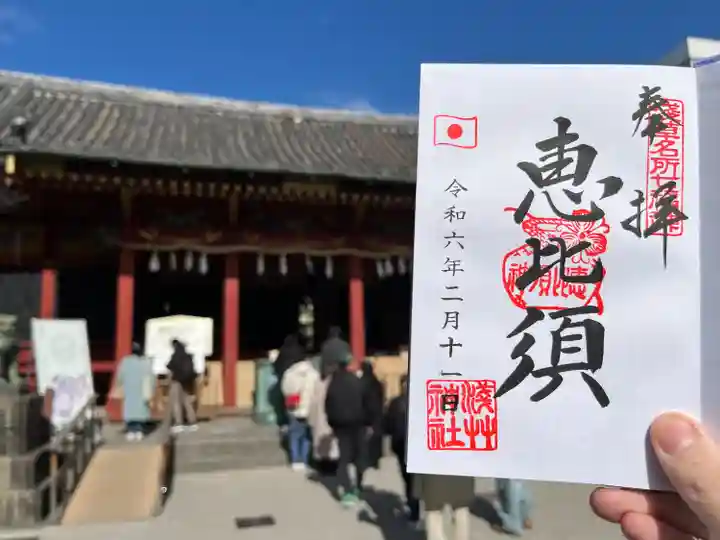 奉拝
浅草名所七福神
恵比須
恵比須神
令和六年二月十一日
浅草神社